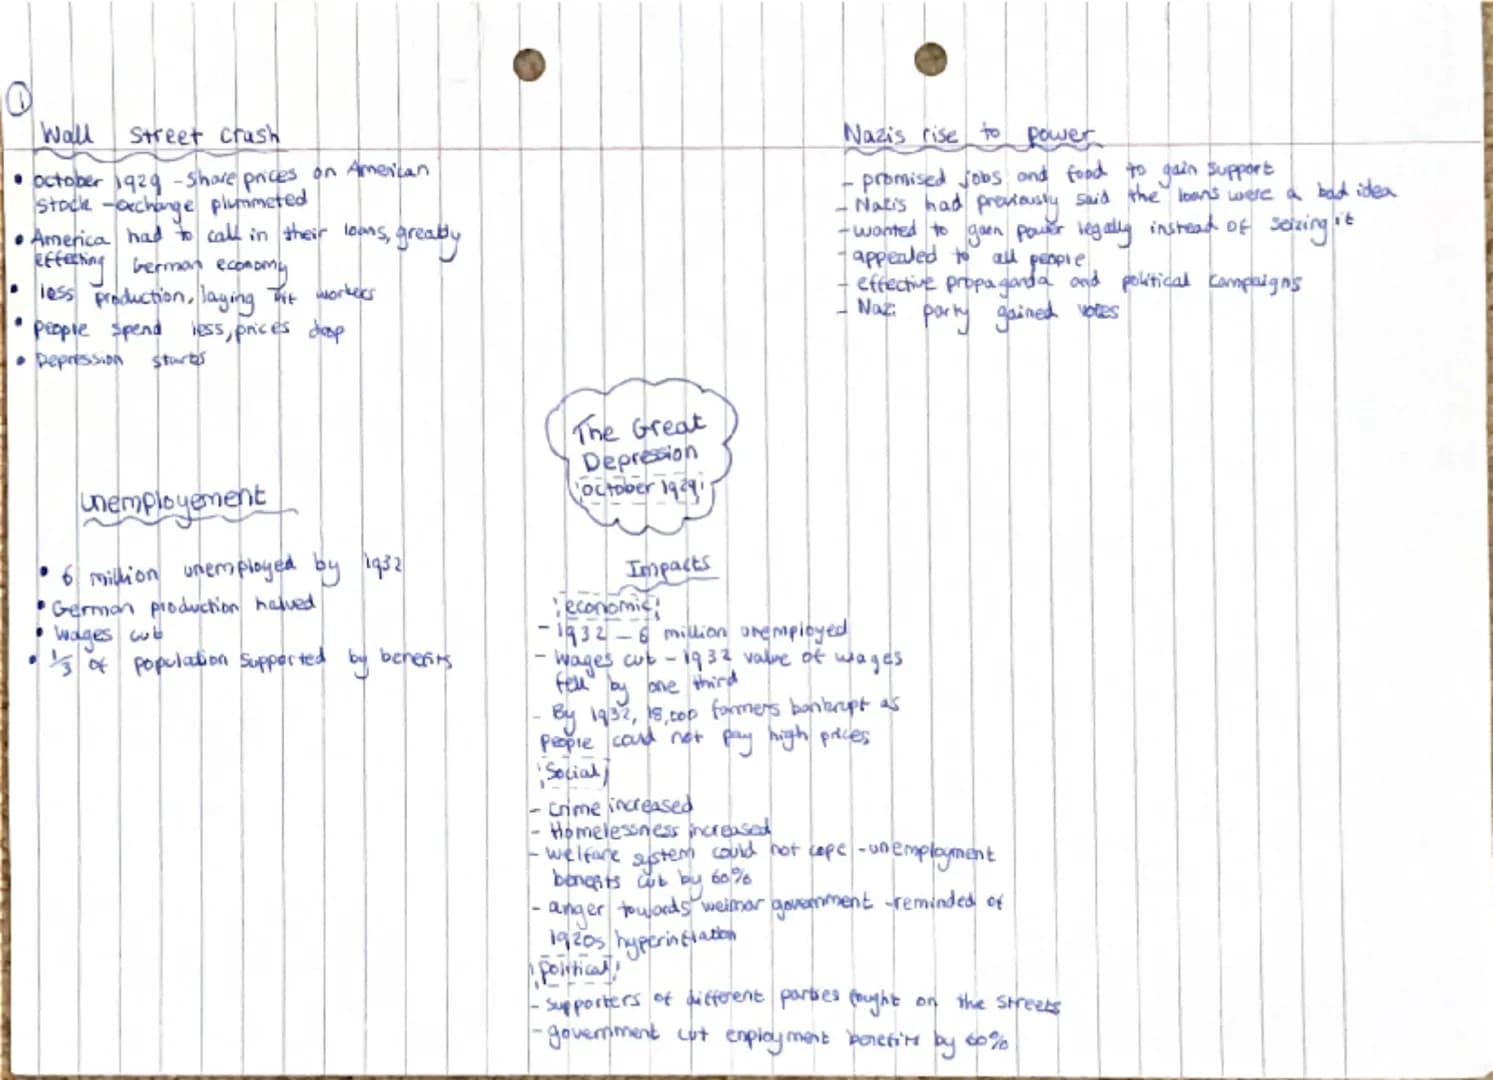 1
Wall Street Crash
• October 1929 - Share prices on American
Stock - exchange plummeted
• America had to call in their loans, greatly
effecting German economy
• less production, laying off workers
• people spend less, prices drop
• Depression starts
Unemployement
• 6 million unemployed by 1932
• German production halved
• Wages cut
• 1/3 of population supported by benefits
The Great
Depression
October 1929
Impacts
economic
- 1932 - 6 million unemployed
- Wages cut - 1932 value of wages
fell by one third
- By 1932, 18,000 farmers bankrupt as
people could not pay high prices
Social
- Crime increased
- Homelessness increased
- Welfare system could not cope - unemployment
benefits cut by 60%
- anger towards weimar government - reminded of
1920s hyperinflation
Political
- Supporters of different parties fought on the streets
- government cut employment benefits by 60%
Nazis rise to power
- promised jobs and food to gain support
- Nazis had previously said the loans were a bad idea
- wanted to gain power legally instead of seizing it
- appealed to all people
- effective propaganda and political campaigns
- Nazi party gained votes